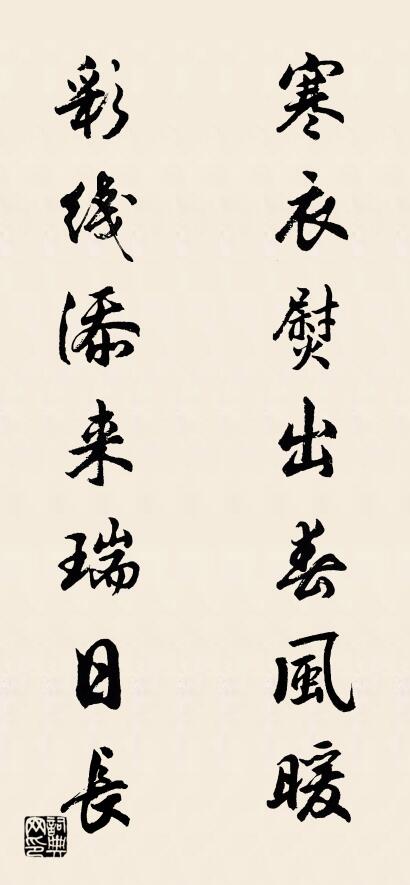 寒衣熨出春風暖
彩线添来瑞日長
詞典网印